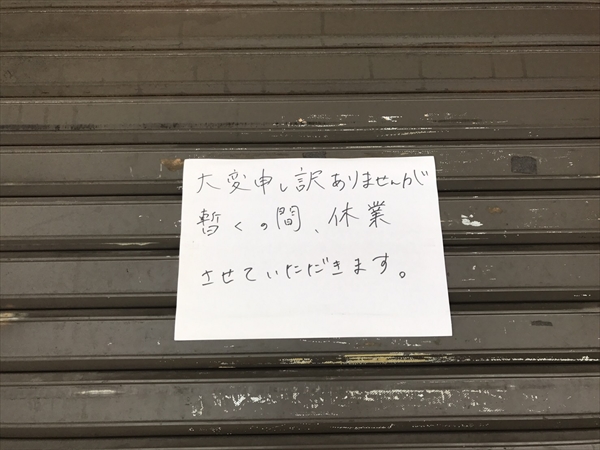 大変申し訳ありませんが
暫くの間、休業
させていただきます。